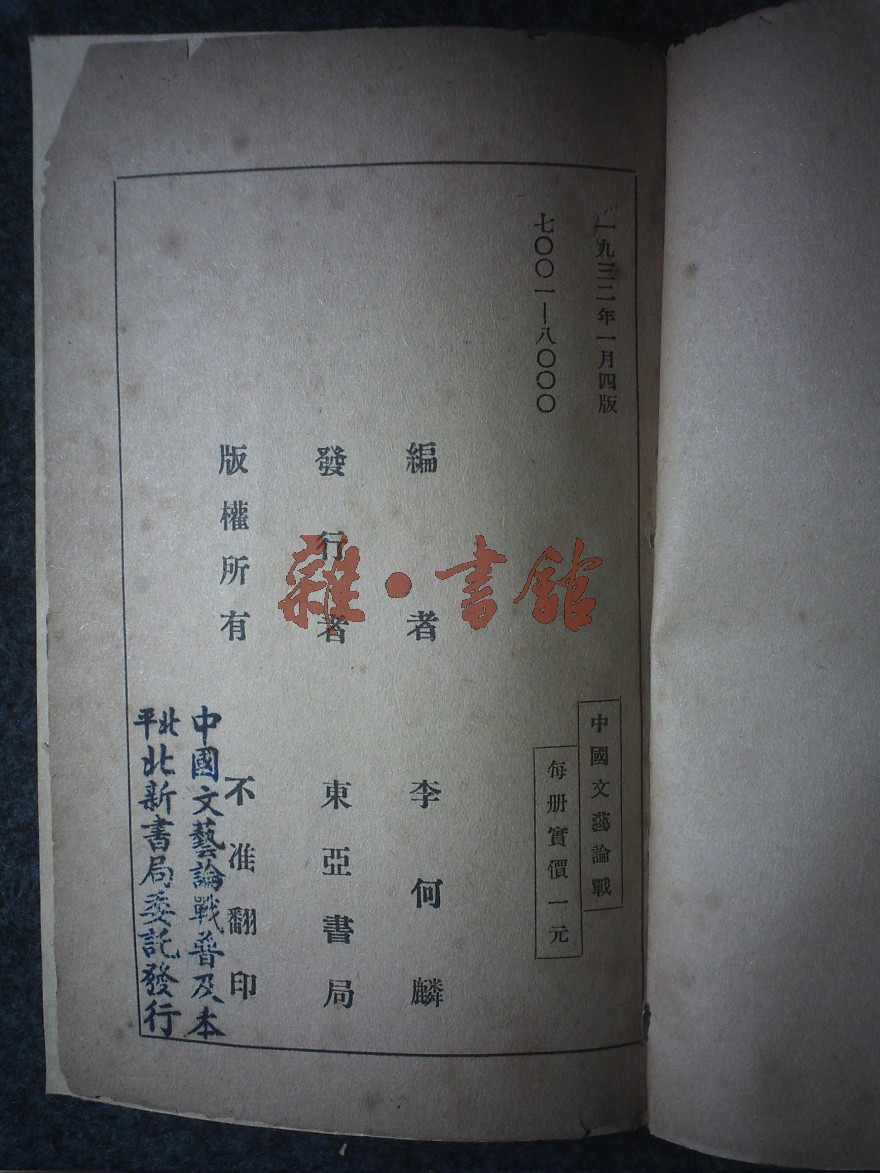 一九三二年一月四版
七〇〇一—八〇〇〇
中國文藝論戰
每册實價一元
編者 李何麟
發行者 東亞書局
版權所有 不准翻印
中國文藝論戰普及本
北平北新書局委託發行
雜·書館